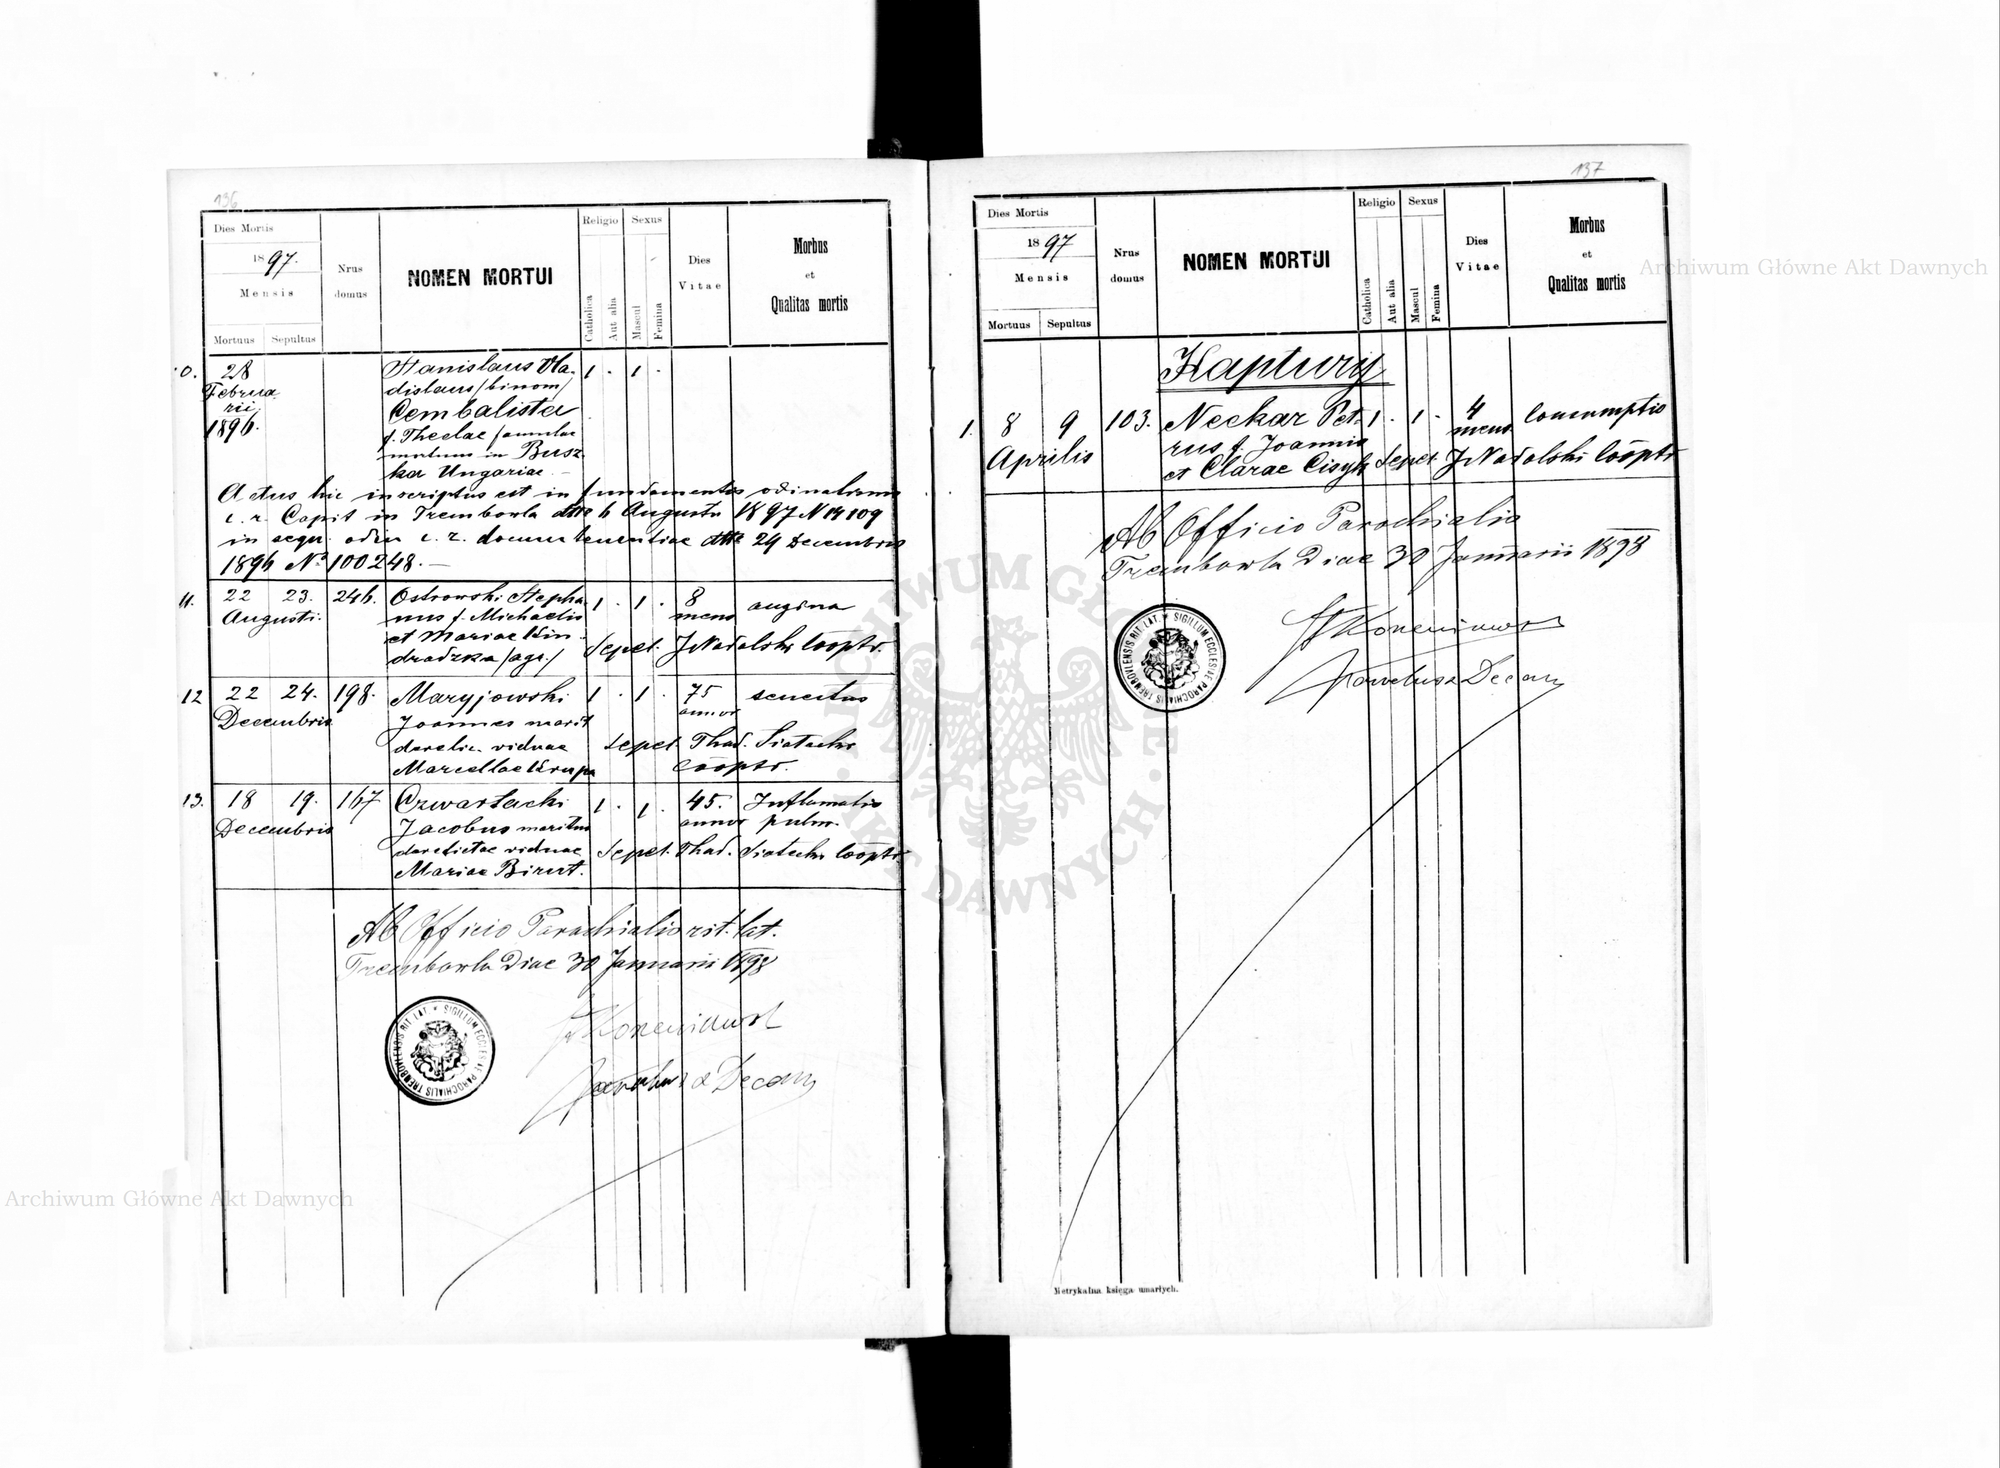 136
Dies Mortis
1897.
Mensis
Mortuus
Sepultus
Nrus
domus
NOMEN MORTUI
Religio
Catholica
Aut alia
Sexus
Mascul
Femina
Dies
Vitae
Morbus
et
Qualitas mortis
28
Februa
rii
1896.
Stanislaus Vla-
dislaus /binom/
Cembalista
f. Theclae /famulae
mortuus in Busz
ka Ungariae
1 . 1 .
Actus hic inscriptus est in fundamento
c. r. Capit in Trembowla dtto 6 Augusti 1897 N 14109
in sequ. c. r. dtto 29 Decembris
1896 No 100248.
11.
22 23. 246.
Augusti.
Ostrowski Stepha
nus f. Michaelis
et Mariae Kin
dradzka /agr./
1 . 1 .
8
mens
angina
Sepel. J Nadolski cooptr.
12
22 24. 198.
Decembris
Maryjowski
Joannes marit
derelic. viduae
Marcellae Krupa
1 . 1 .
75
annor
senectus
Sepel. Thad. Siatecki
cooptr.
13.
18 19. 167
Decembris
Czwartacki
Jacobus maritus
derelictae viduae
Mariae Birut.
1 . 1 .
45.
annor
Inflamatio
pulm.
Sepel. Thad. Siatecki cooptr.
Ab Officio Parochiali rit. lat.
Trembowla Diae 30 Januarii 1898
SIGILLUM ECCLESIAE PAROCHIALIS TREMBOVLENSIS RIT. LAT.
137
Dies Mortis
1897
Mensis
Mortuus
Sepultus
Nrus
domus
NOMEN MORTUI
Religio
Catholica
Aut alia
Sexus
Mascul
Femina
Dies
Vitae
Morbus
et
Qualitas mortis
Haptury
1.
8 9 103.
Aprilis
Neckar Pet-
rus f. Joannis
et Clarae Cisyk
1 . 1 .
4
mens
Consumptio
Sepel. J Nadolski cooptr
Ab Officio Parochialis
Trembowla Diae 30 Januarii 1898
SIGILLUM ECCLESIAE PAROCHIALIS TREMBOVLENSIS RIT. LAT.
Metrykalna księga umarłych.
Archiwum Główne Akt Dawnych
Archiwum Główne Akt Dawnych
ARCHIWUM GŁÓWNE
AKT DAWNYCH